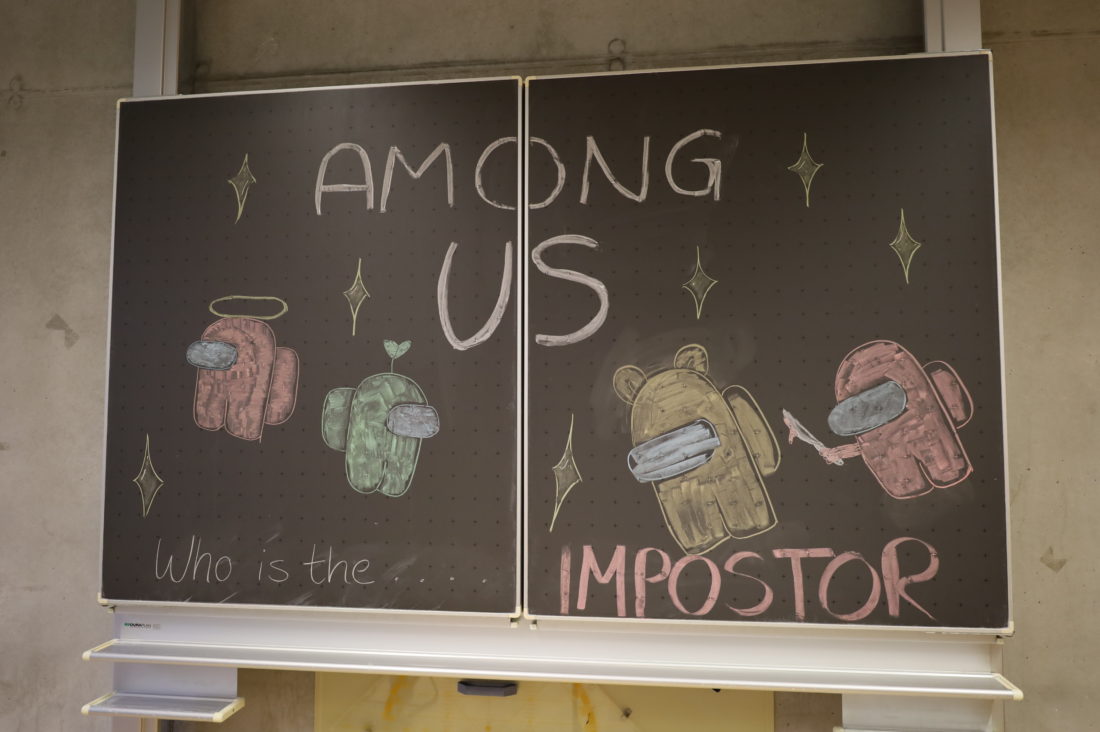 AMONG
US
Who is the.....
IMPOSTOR